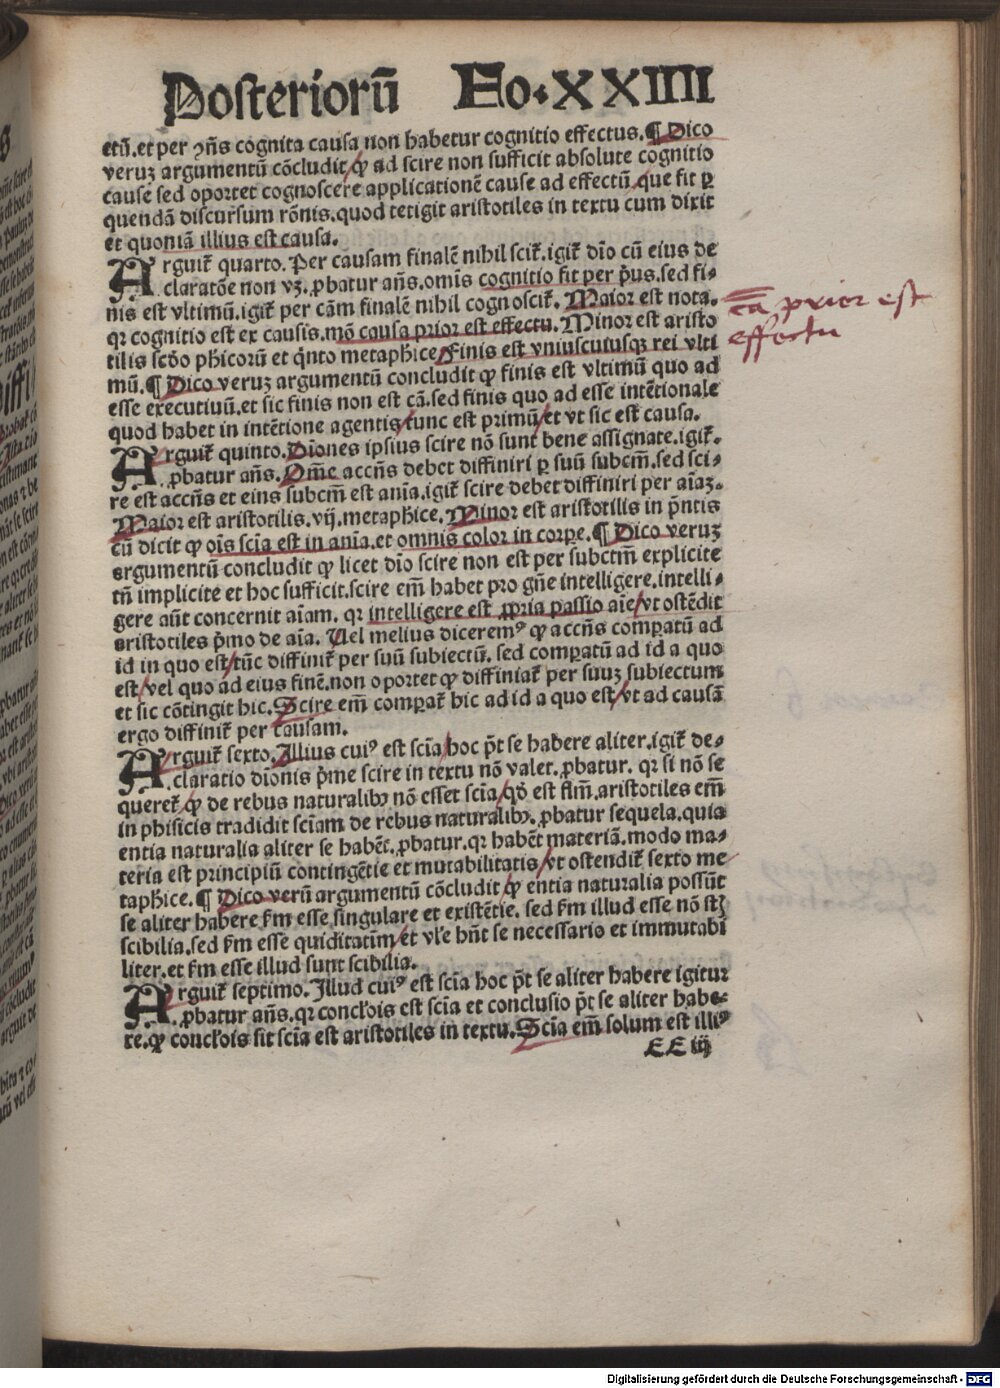 Posteriorū Fo.XXIIII
etū.et per ↄn̄s cognita causa non habetur cognitio effectus.¶ Dico
veruꝫ argumentū cōcludit/ ꝙ ad scire non sufficit absolute cognitio
cause sed oportet cognoscere applicationē cause ad effectū/ que fit ꝑ
quendā discursum rōnis.quod tetigit aristotiles in textu cum dixit
et quoniā illius est causa.
Arguit᷑ quarto. Per causam finalē nihil scit᷑.igit᷑ dīo cū eius de
claratōe non vꝫ. ꝓbatur an̄s.omīs cognitio fit per p̄us.sed fi⸗
nis est vltimū.igit᷑ per cām finalē nihil cognoscit᷑. Maior est nota.
qꝛ cognitio est ex causis.mō causa prior est effectu. Minor est aristo
tilis scd̄o phicorū et q̄nto metaph̄ice/ Finis est vniuscuiusqꝫ rei vlti
mū.¶ Dico veruꝫ argumentū concludit ꝙ finis est vltimū quo ad
esse executiuū.et sic finis non est cā.sed finis quo ad esse intētionale
quod habet in intētione agentis/ tunc est primū/ et vt sic est causa.
Arguit᷑ quinto. Dīones ipsius scire nō sunt bene assignate.igit᷑.
ꝓbatur an̄s. Om̄e accn̄s debet diffiniri ꝑ suū subcm̄.sed sci⸗
re est accn̄s et eius subcm̄ est anīa.igit᷑ scire debet diffiniri per aīaꝫ.
Maior est aristotilis.vij.metaph̄ice. Minor est aristotilis in p̄ntis
cū dicit ꝙ oīs scīa est in anīa.et omnis color in corpe.¶ Dico veruꝫ
argumentū concludit ꝙ licet dīo scire non est per subctm̄ explicite
tn̄ implicite et hoc sufficit.scire em̄ habet pro gn̄e intelligere.intelli⸗
gere aūt concernit aīam. qꝛ intelligere est ꝓpria passio aīe/ vt ostēdit
aristotiles p̄mo de aīa. Uel melius diceremꝰ ꝙ accn̄s compatū ad
id in quo est/ tūc diffinit᷑ per suū subiectū. sed compatū ad id a quo
est/ vel quo ad eius finē.non oportet ꝙ diffiniat᷑ per suuꝫ subiectum
et sic cōtingit hic. Scire em̄ compat᷑ hic ad id a quo est/ vt ad causā
ergo diffinit᷑ per causam.
Arguit᷑ sexto. Illius cuiꝰ est scīa/ hoc p̄t se habere aliter.igit᷑ de⸗
claratio dīonis p̄me scire in textu nō valet. ꝓbatur. qꝛ si nō se
queret᷑ ꝙ de rebus naturalibꝰ nō esset scīa/ qd̄ est flm̄.aristotiles em̄
in phisicis tradidit scīam de rebus naturalibꝰ. ꝓbatur sequela.quia
entia naturalia aliter se habēt. ꝓbatur.qꝛ habēt materiā.modo ma⸗
teria est principiū contingētie et mutabilitatis/ vt ostendit᷑ sexto me
taph̄ice.¶ Dico verū argumentū cōcludit/ ꝙ entia naturalia possūt
se aliter habere fm̄ esse singulare et existētie. sed fm̄ illud esse nō st̄
scibilia.sed fm̄ esse quiditatiū/ et vl̄e hn̄t se necessario et immutabi
liter.et fm̄ esse illud sunt scibilia.
Arguit᷑ septimo. Illud cuiꝰ est scīa hoc p̄t se aliter habere igitur
ꝓbatur an̄s.qꝛ conclōis est scīa et conclusio p̄t se aliter habe⸗
re.ꝙ conclōis sit scīa est aristotiles in textu. Scīa em̄ solum est illiꝰ
EE iij
cā prior est
effectu
Digitalisierung gefördert durch die Deutsche Forschungsgemeinschaft - DFG